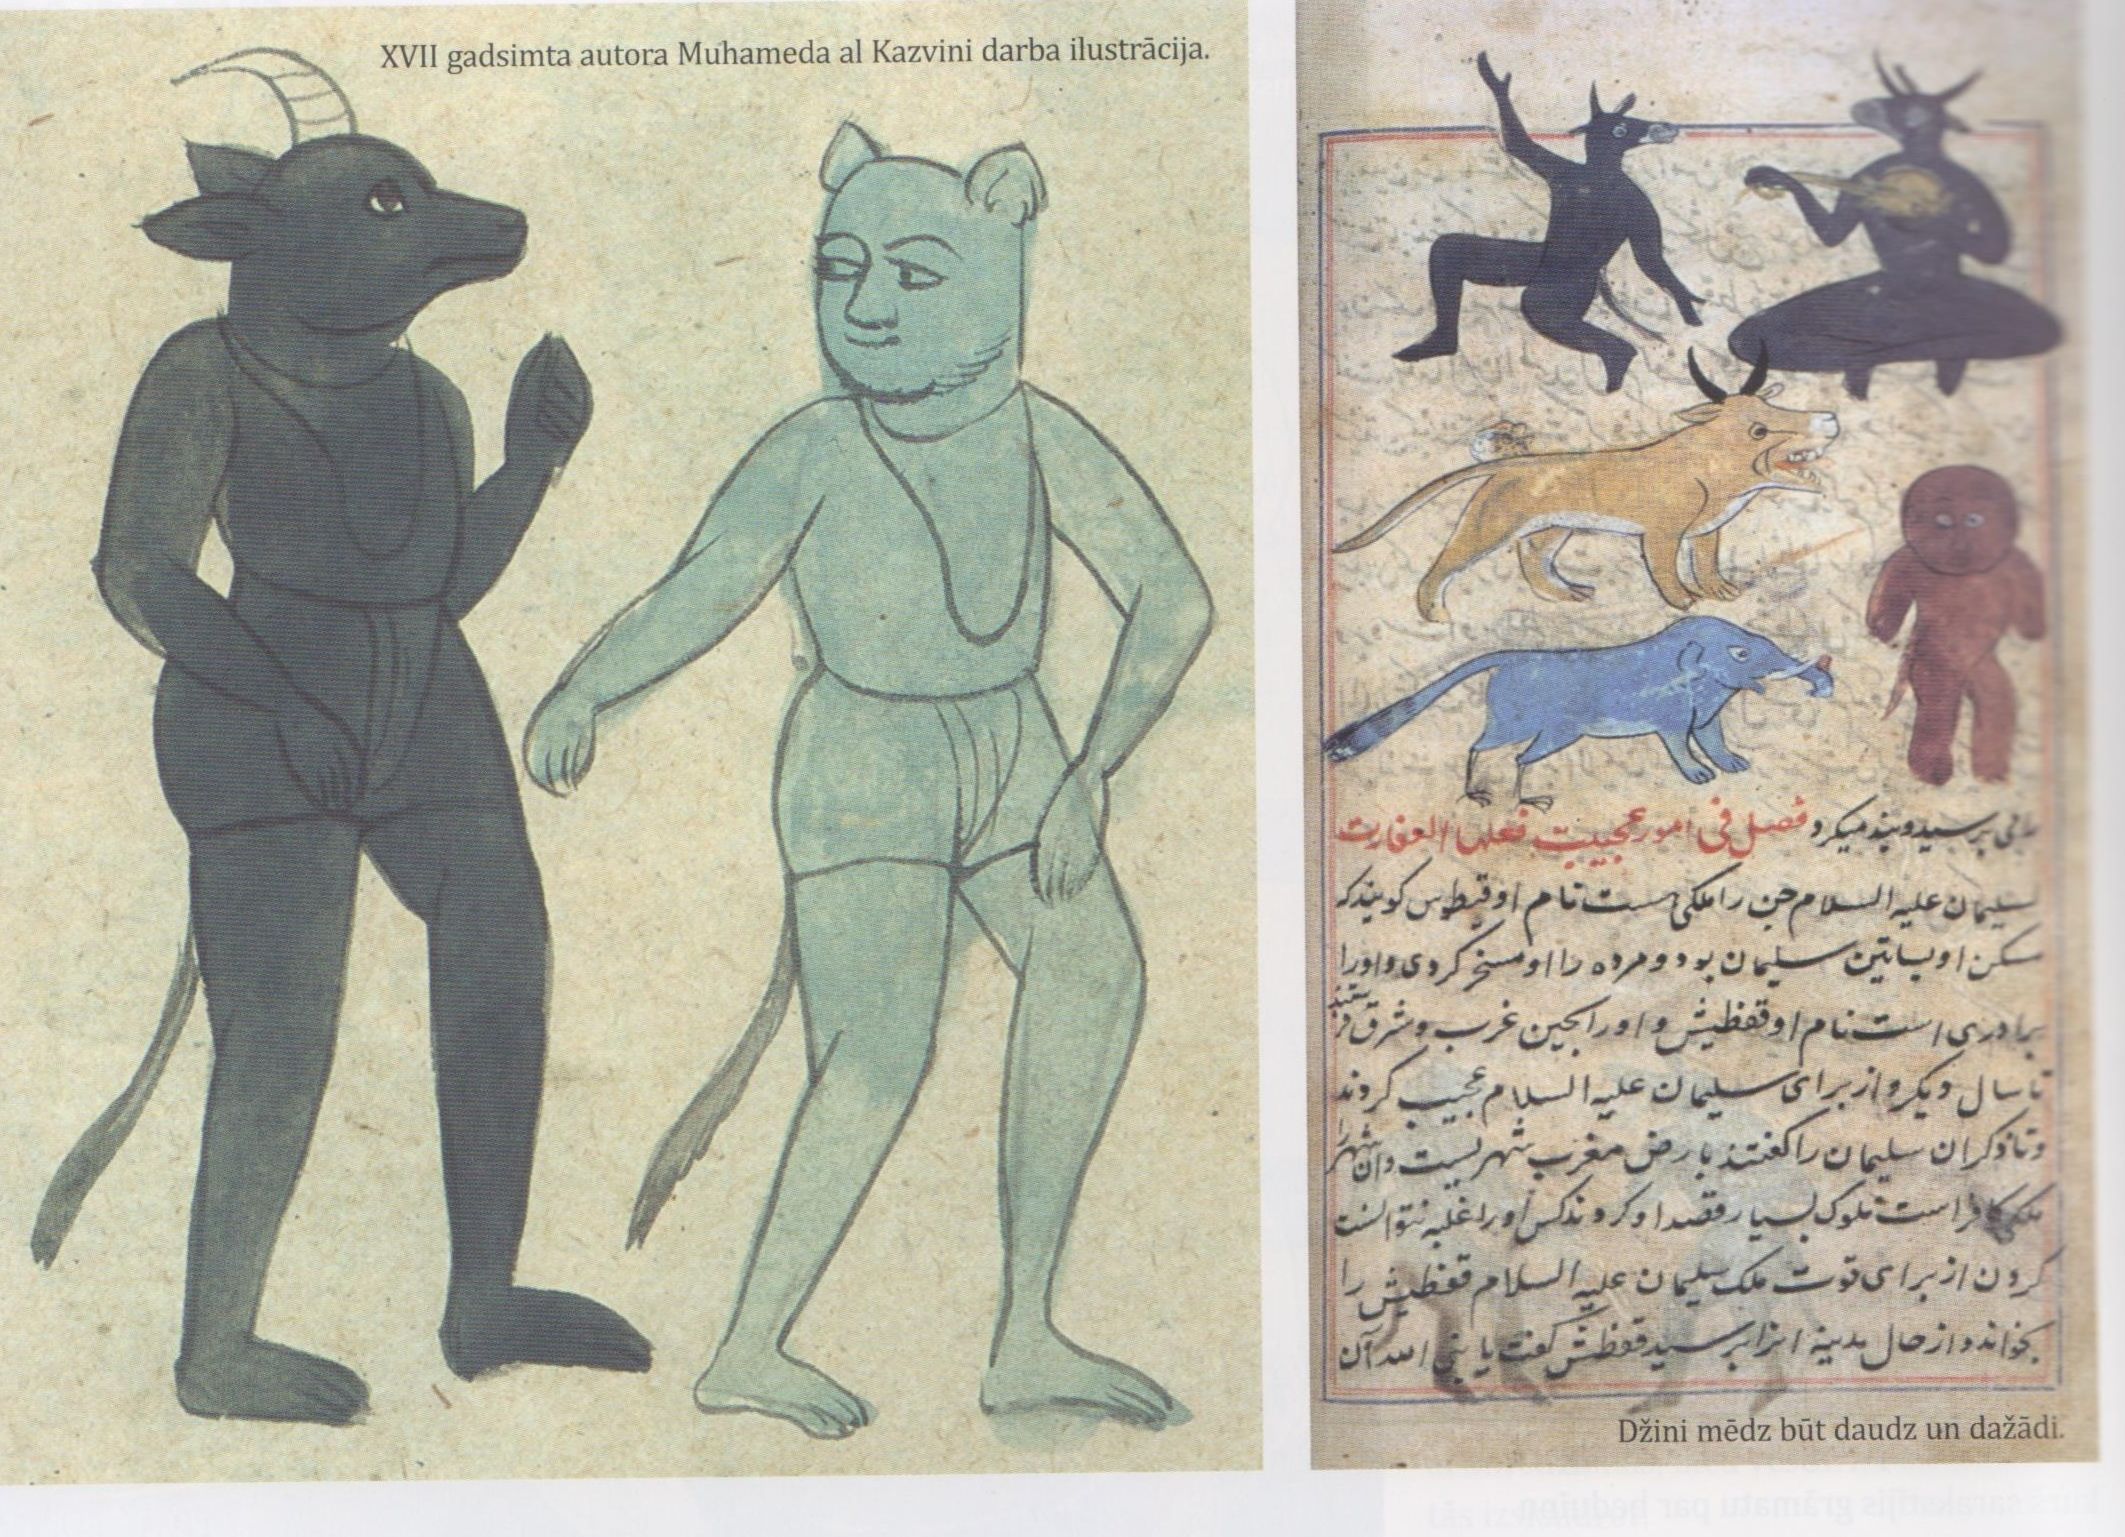 XVII gadsimta autora Muhameda al Kazvini darba ilustrācija.
پرسید و پند میکرد فصل فی امور عجیبت فعلها العفاریت
سلیمان علیه السلام جن را ملکی است نام او قیطوس کویند که
مسکن او بساتین سلیمان بود و مرده را او مسخر کردی و او را
برادری است نام او قفظیش و او را بجین غرب و شرق
تا سال دیکر و از برای سلیمان علیه السلام عجیب کروند
سلیمان را کفتند بارض مغرب شهریست وان شهر را
ملکی کافر است ملوک بسیار قصد او کردند کس او را غلبه نتوانست
کردن از برای قوت ملک سلیمان علیه السلام قفظیش را
بخواند و از حال مدینه پرسید قفظش کفت یا نبی الله آن
Džini mēdz būt daudz un dažādi.